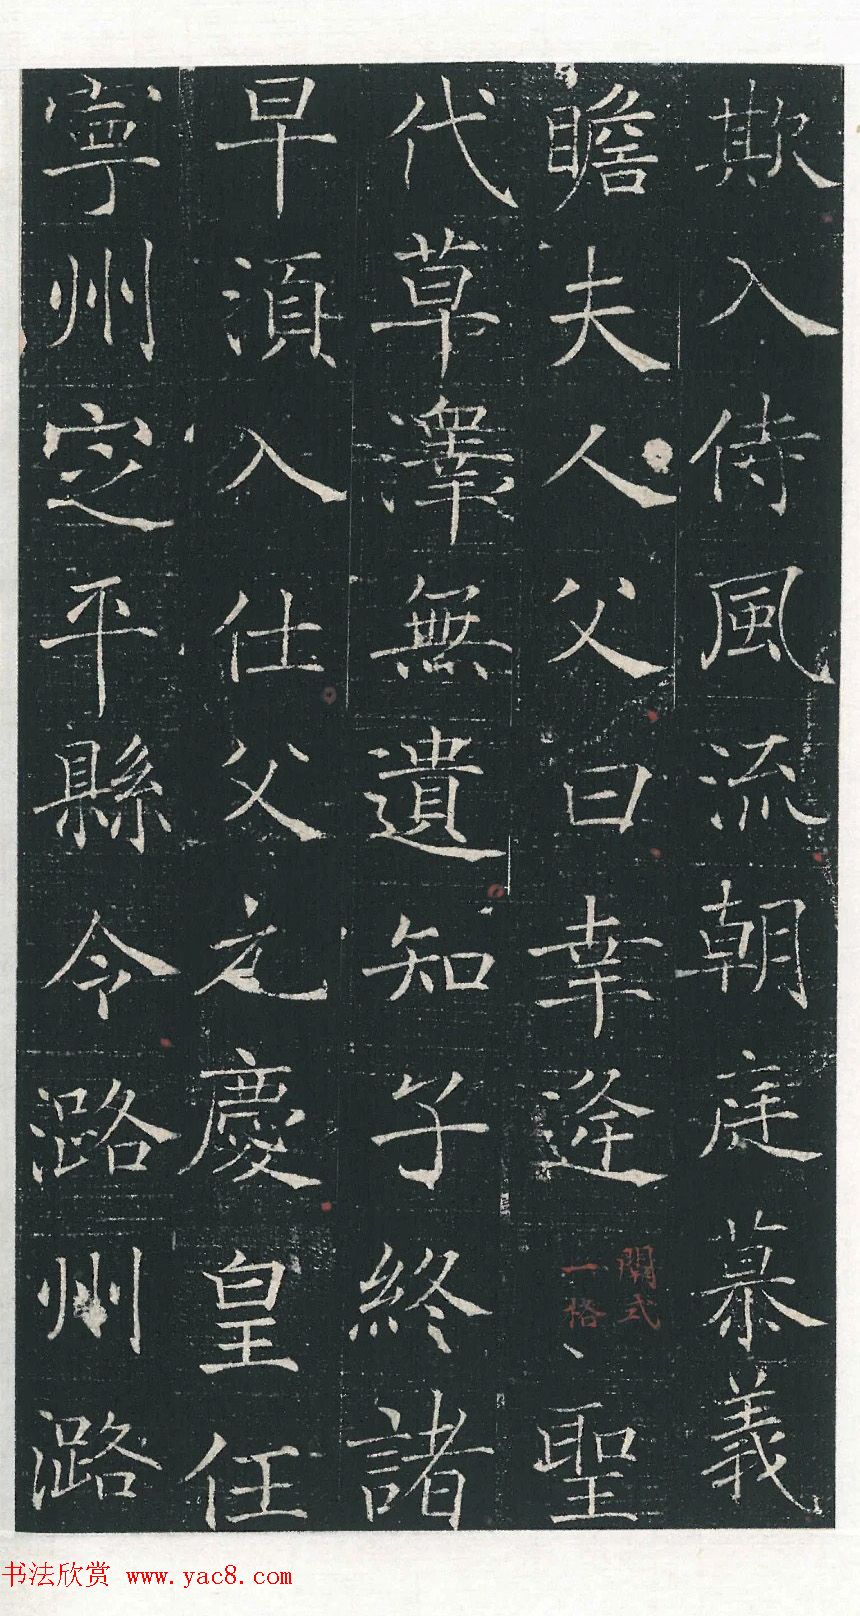 欺入侍風流朝庭慕義
瞻夫人父曰幸逢
闕式
一格
聖
代草澤無遺知子終諸
早湏入仕父之慶皇任
寧州定平縣令潞州潞
书法欣赏 www.yac8.com